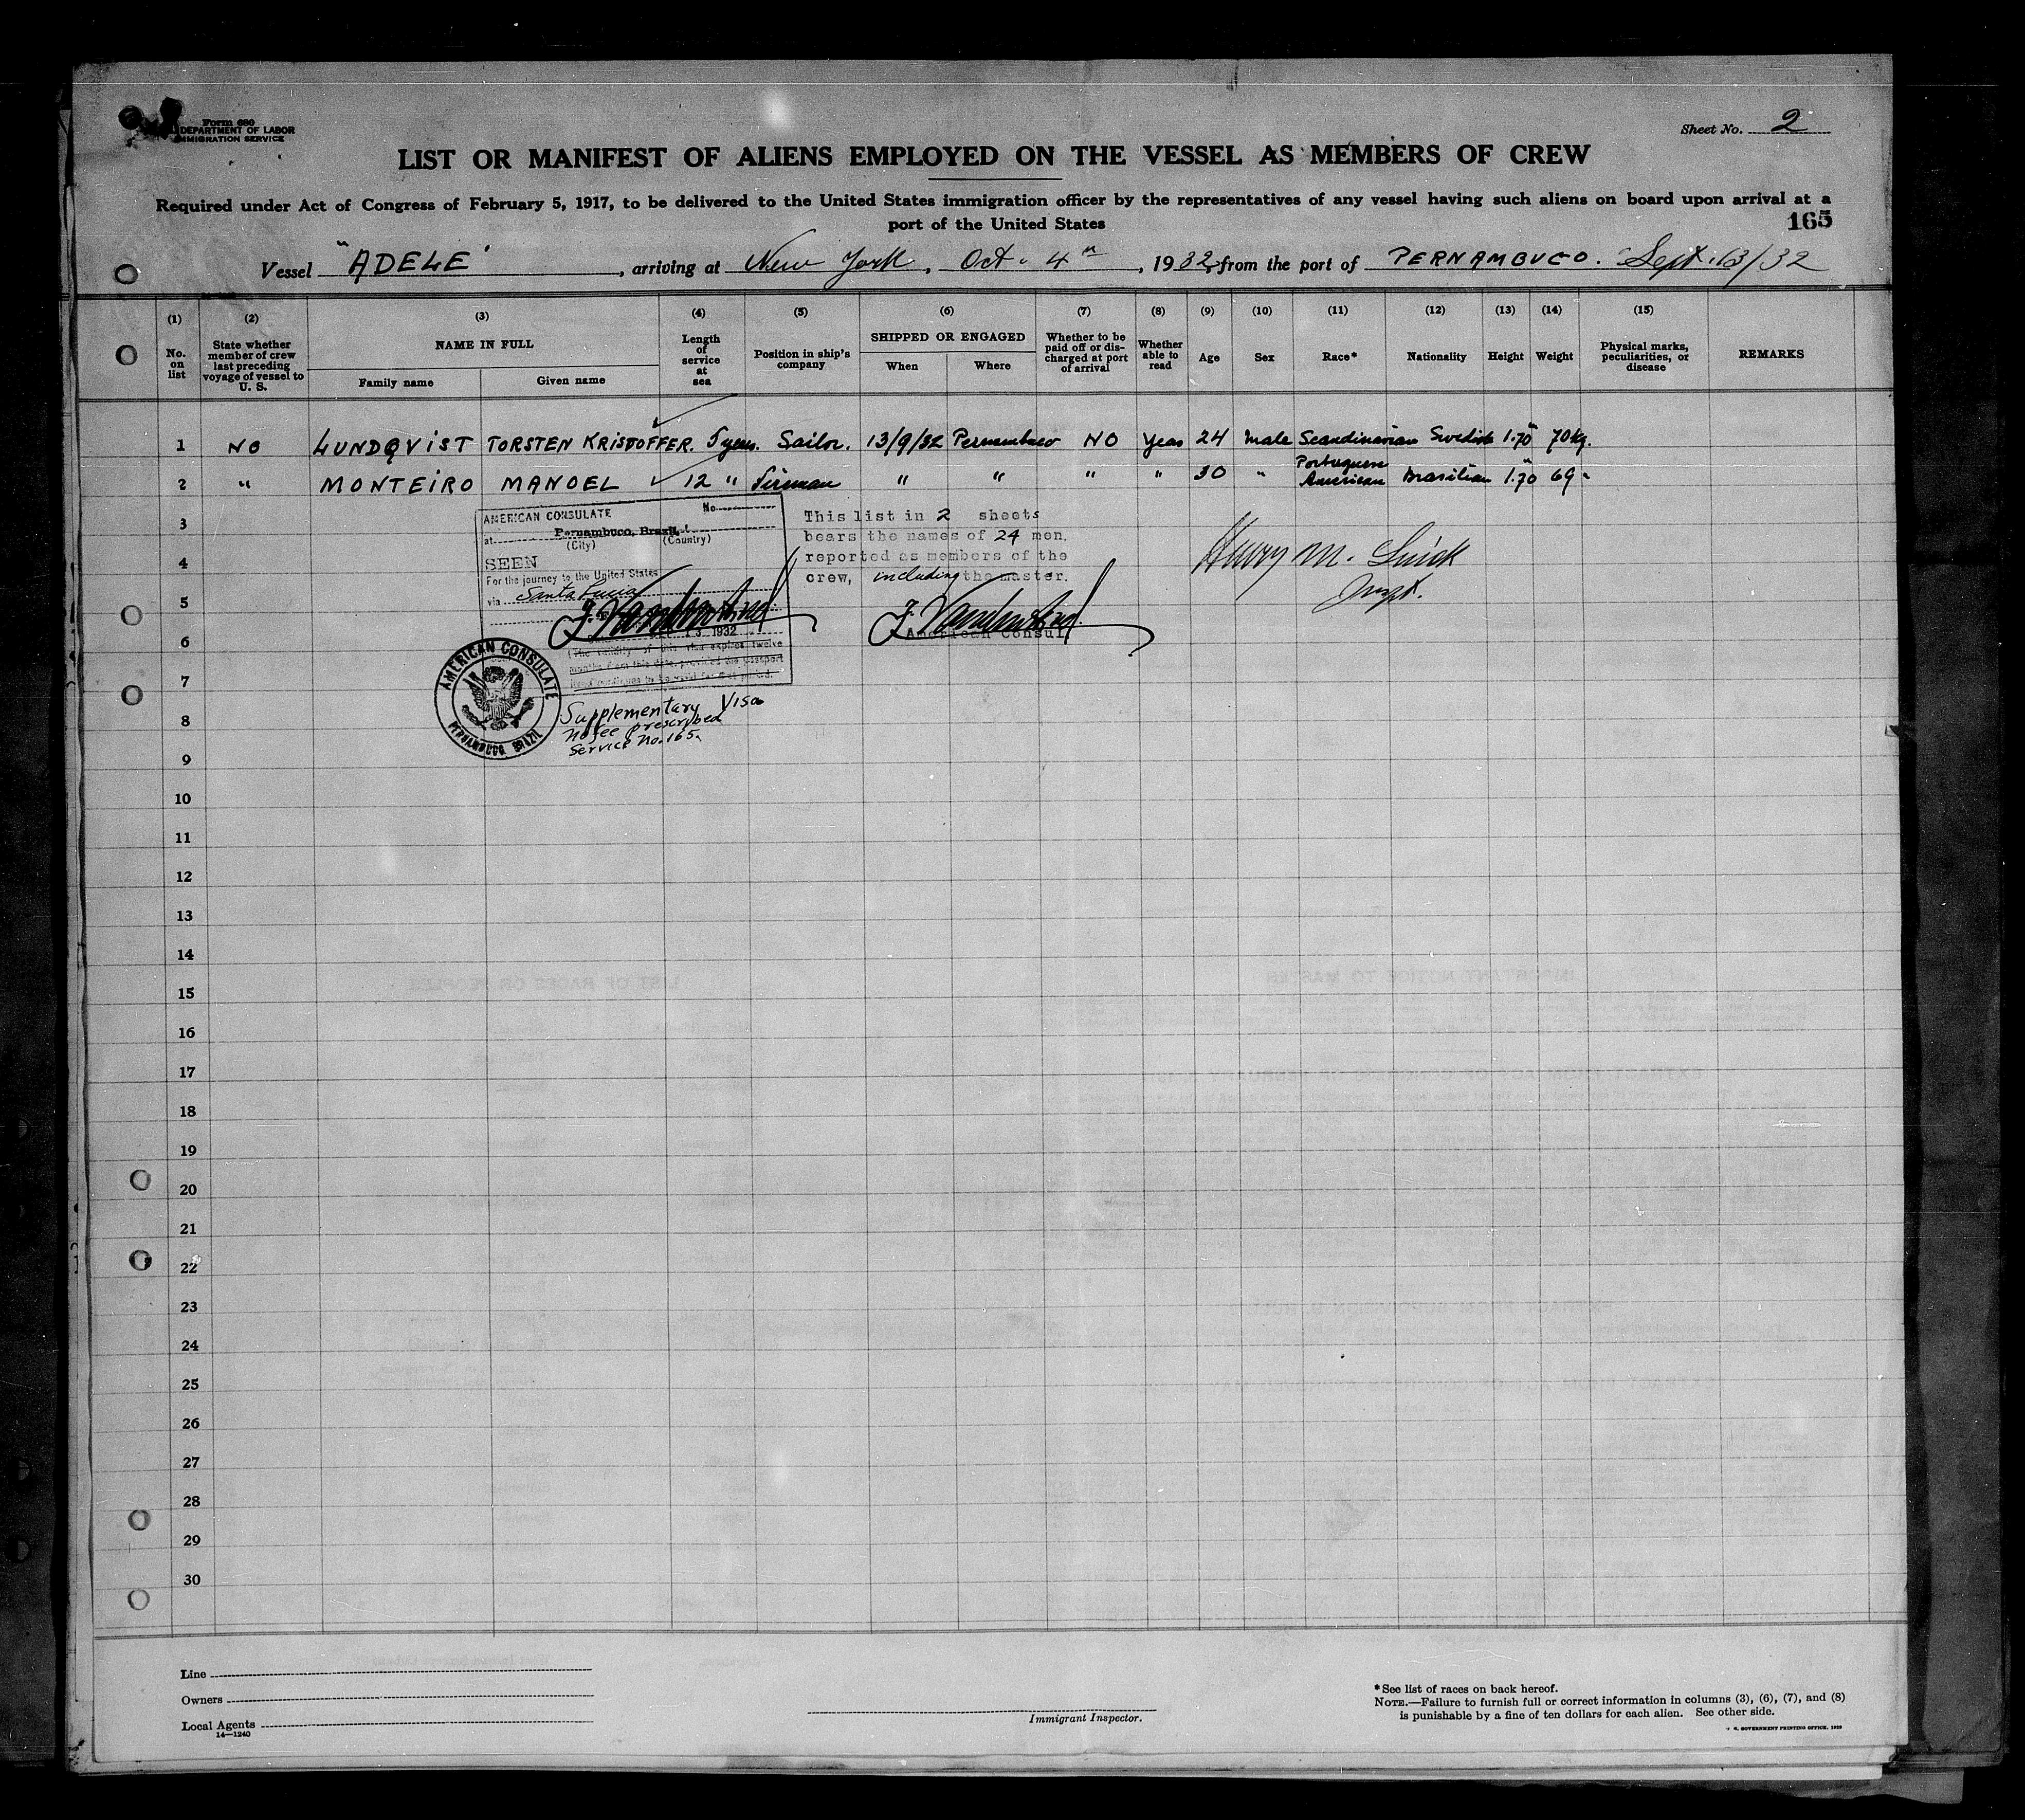 Form 680
DEPARTMENT OF LABOR
IMMIGRATION SERVICE
Sheet No. 2
LIST OR MANIFEST OF ALIENS EMPLOYED ON THE VESSEL AS MEMBERS OF CREW
Required under Act of Congress of February 5, 1917, to be delivered to the United States immigration officer by the representatives of any vessel having such aliens on board upon arrival at a
port of the United States
165
Vessel "ADELE", arriving at New York, Oct. 4th, 1932, from the port of PERNAMBUCO. Sept. 13/32
(1) (2) (3) (4) (5) (6) (7) (8) (9) (10) (11) (12) (13) (14) (15)
No. on list
State whether member of crew last preceding voyage of vessel to U. S.
NAME IN FULL
Family name
Given name
Length of service at sea
Position in ship's company
SHIPPED OR ENGAGED
When
Where
Whether to be paid off or discharged at port of arrival
Whether able to read
Age
Sex
Race*
Nationality
Height
Weight
Physical marks, peculiarities, or disease
REMARKS
1 NO LUNDQVIST TORSTEN KRISTOFFER. 5 years. Sailor. 13/9/32 Pernambuco NO Yeas 24 male Scandinavian Swedish 1.70 70kg.
2 " MONTEIRO MANOEL 12 " Fireman " " " " 30 " Portuguese American Brasilian 1.70 69 "
3
4
5
6
7
8
9
10
11
12
13
14
15
16
17
18
19
20
21
22
23
24
25
26
27
28
29
30
AMERICAN CONSULATE No.
at Pernambuco, Brazil.
(City) (Country)
SEEN
For the journey to the United States
via Santa Lucia
13, 1932
(The validity of this visa expires twelve
months from this date, provided the passport
AMERICAN CONSULATE
PERNAMBUCO BRAZIL
Supplementary Visa
No fee prescribed
Service No. 165.
This list in 2 sheets
bears the names of 24 men,
reported as members of the
crew, including the master.
American Consul
Henry M.
Inspt.
Line
Owners
Local Agents
14—1240
Immigrant Inspector.
*See list of races on back hereof.
NOTE.—Failure to furnish full or correct information in columns (3), (6), (7), and (8)
is punishable by a fine of ten dollars for each alien. See other side.
GOVERNMENT PRINTING OFFICE